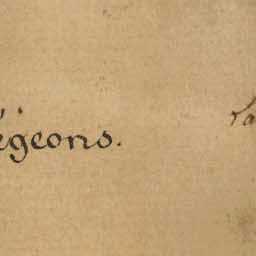 égeons.